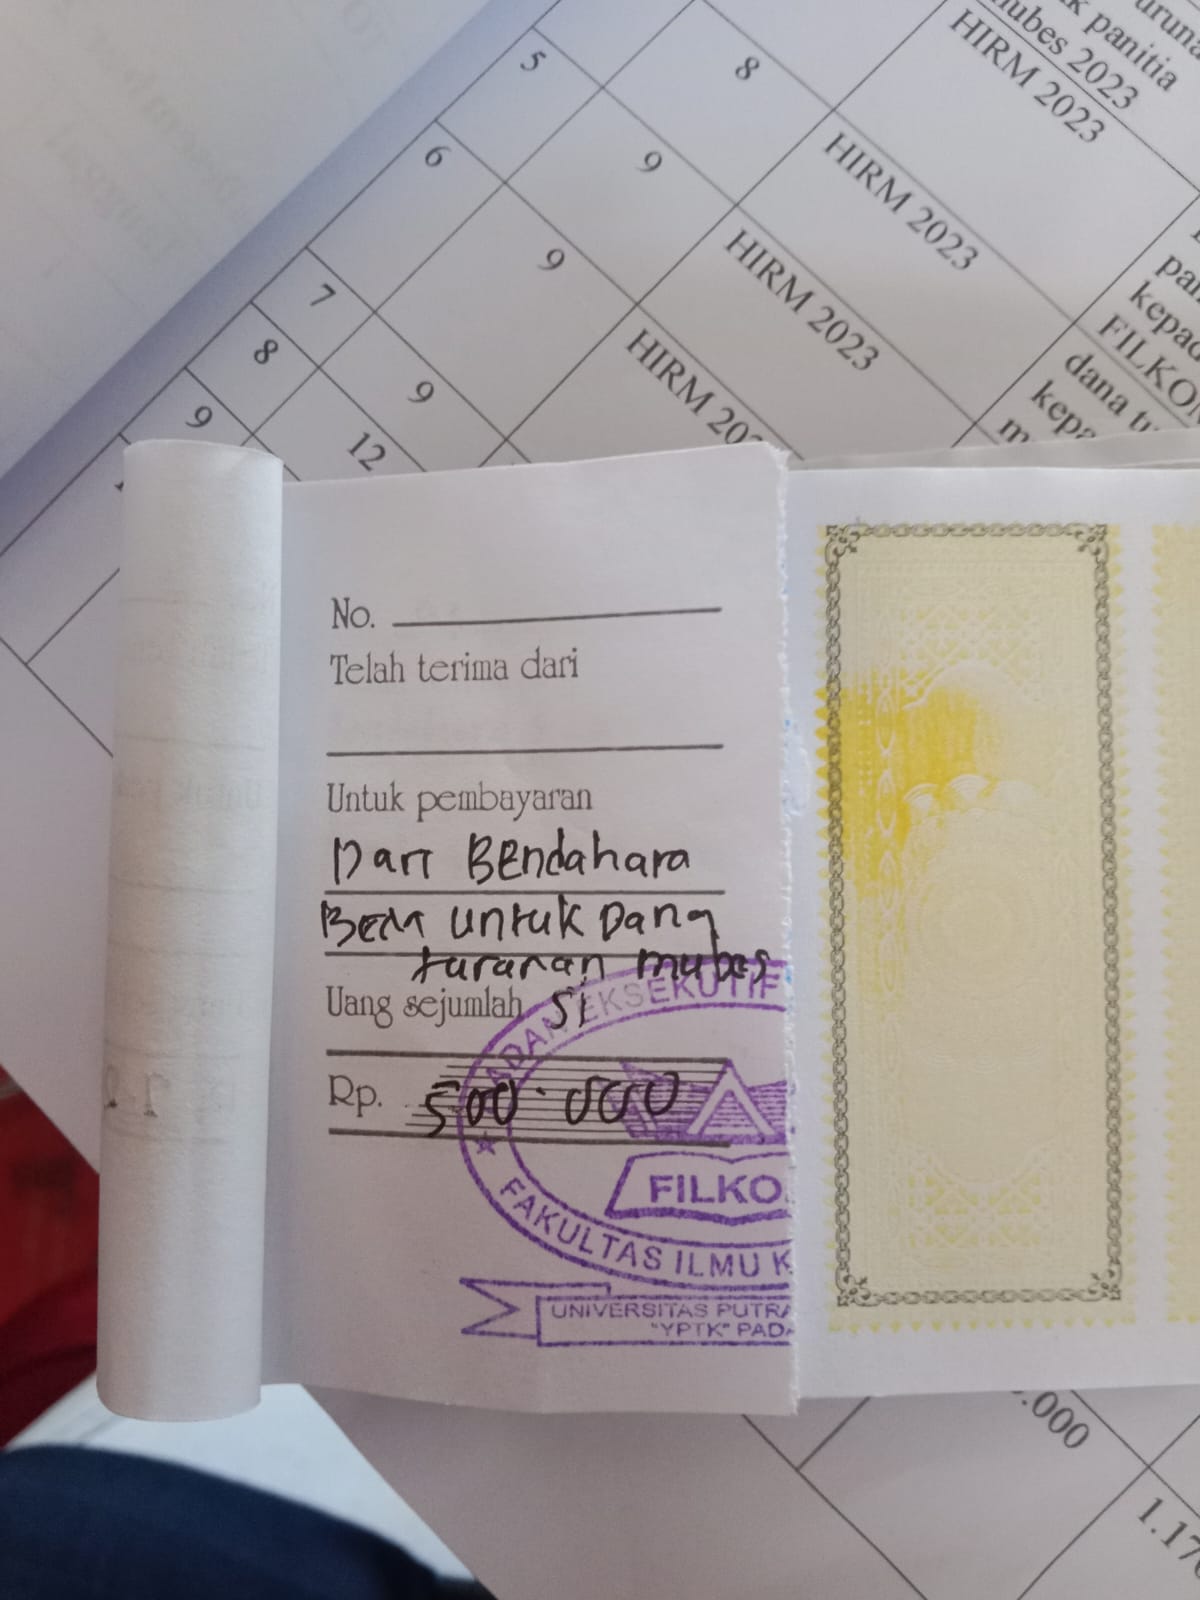 uruna
k panitia
mubes 2023
HIRM 2023
5
8
6
9
HIRM 2023
7
9
HIRM 2023
8
9
HIRM 20
9
12
pan
kepad
FILKO
dana tu
kepa
m
No.
Telah terima dari
Untuk pembayaran
Dari BEndahara
Bem untuk Dang
turanan mubes
Uang sejumlah SI
Rp. 500.000
ADAN EKSEKUTIF
FILKO
FAKULTAS ILMU K
UNIVERSITAS PUTRA
"YPTK" PADA
.000
1.170